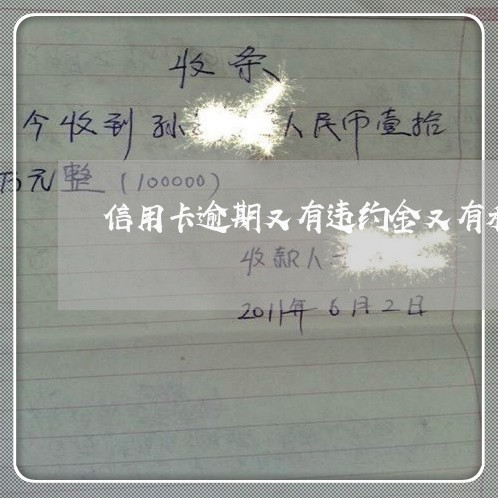 收条
今收到孙 人民币壹拾
万元整（100000）
信用卡逾期又有违约金又有
收款人
2011年6月2日